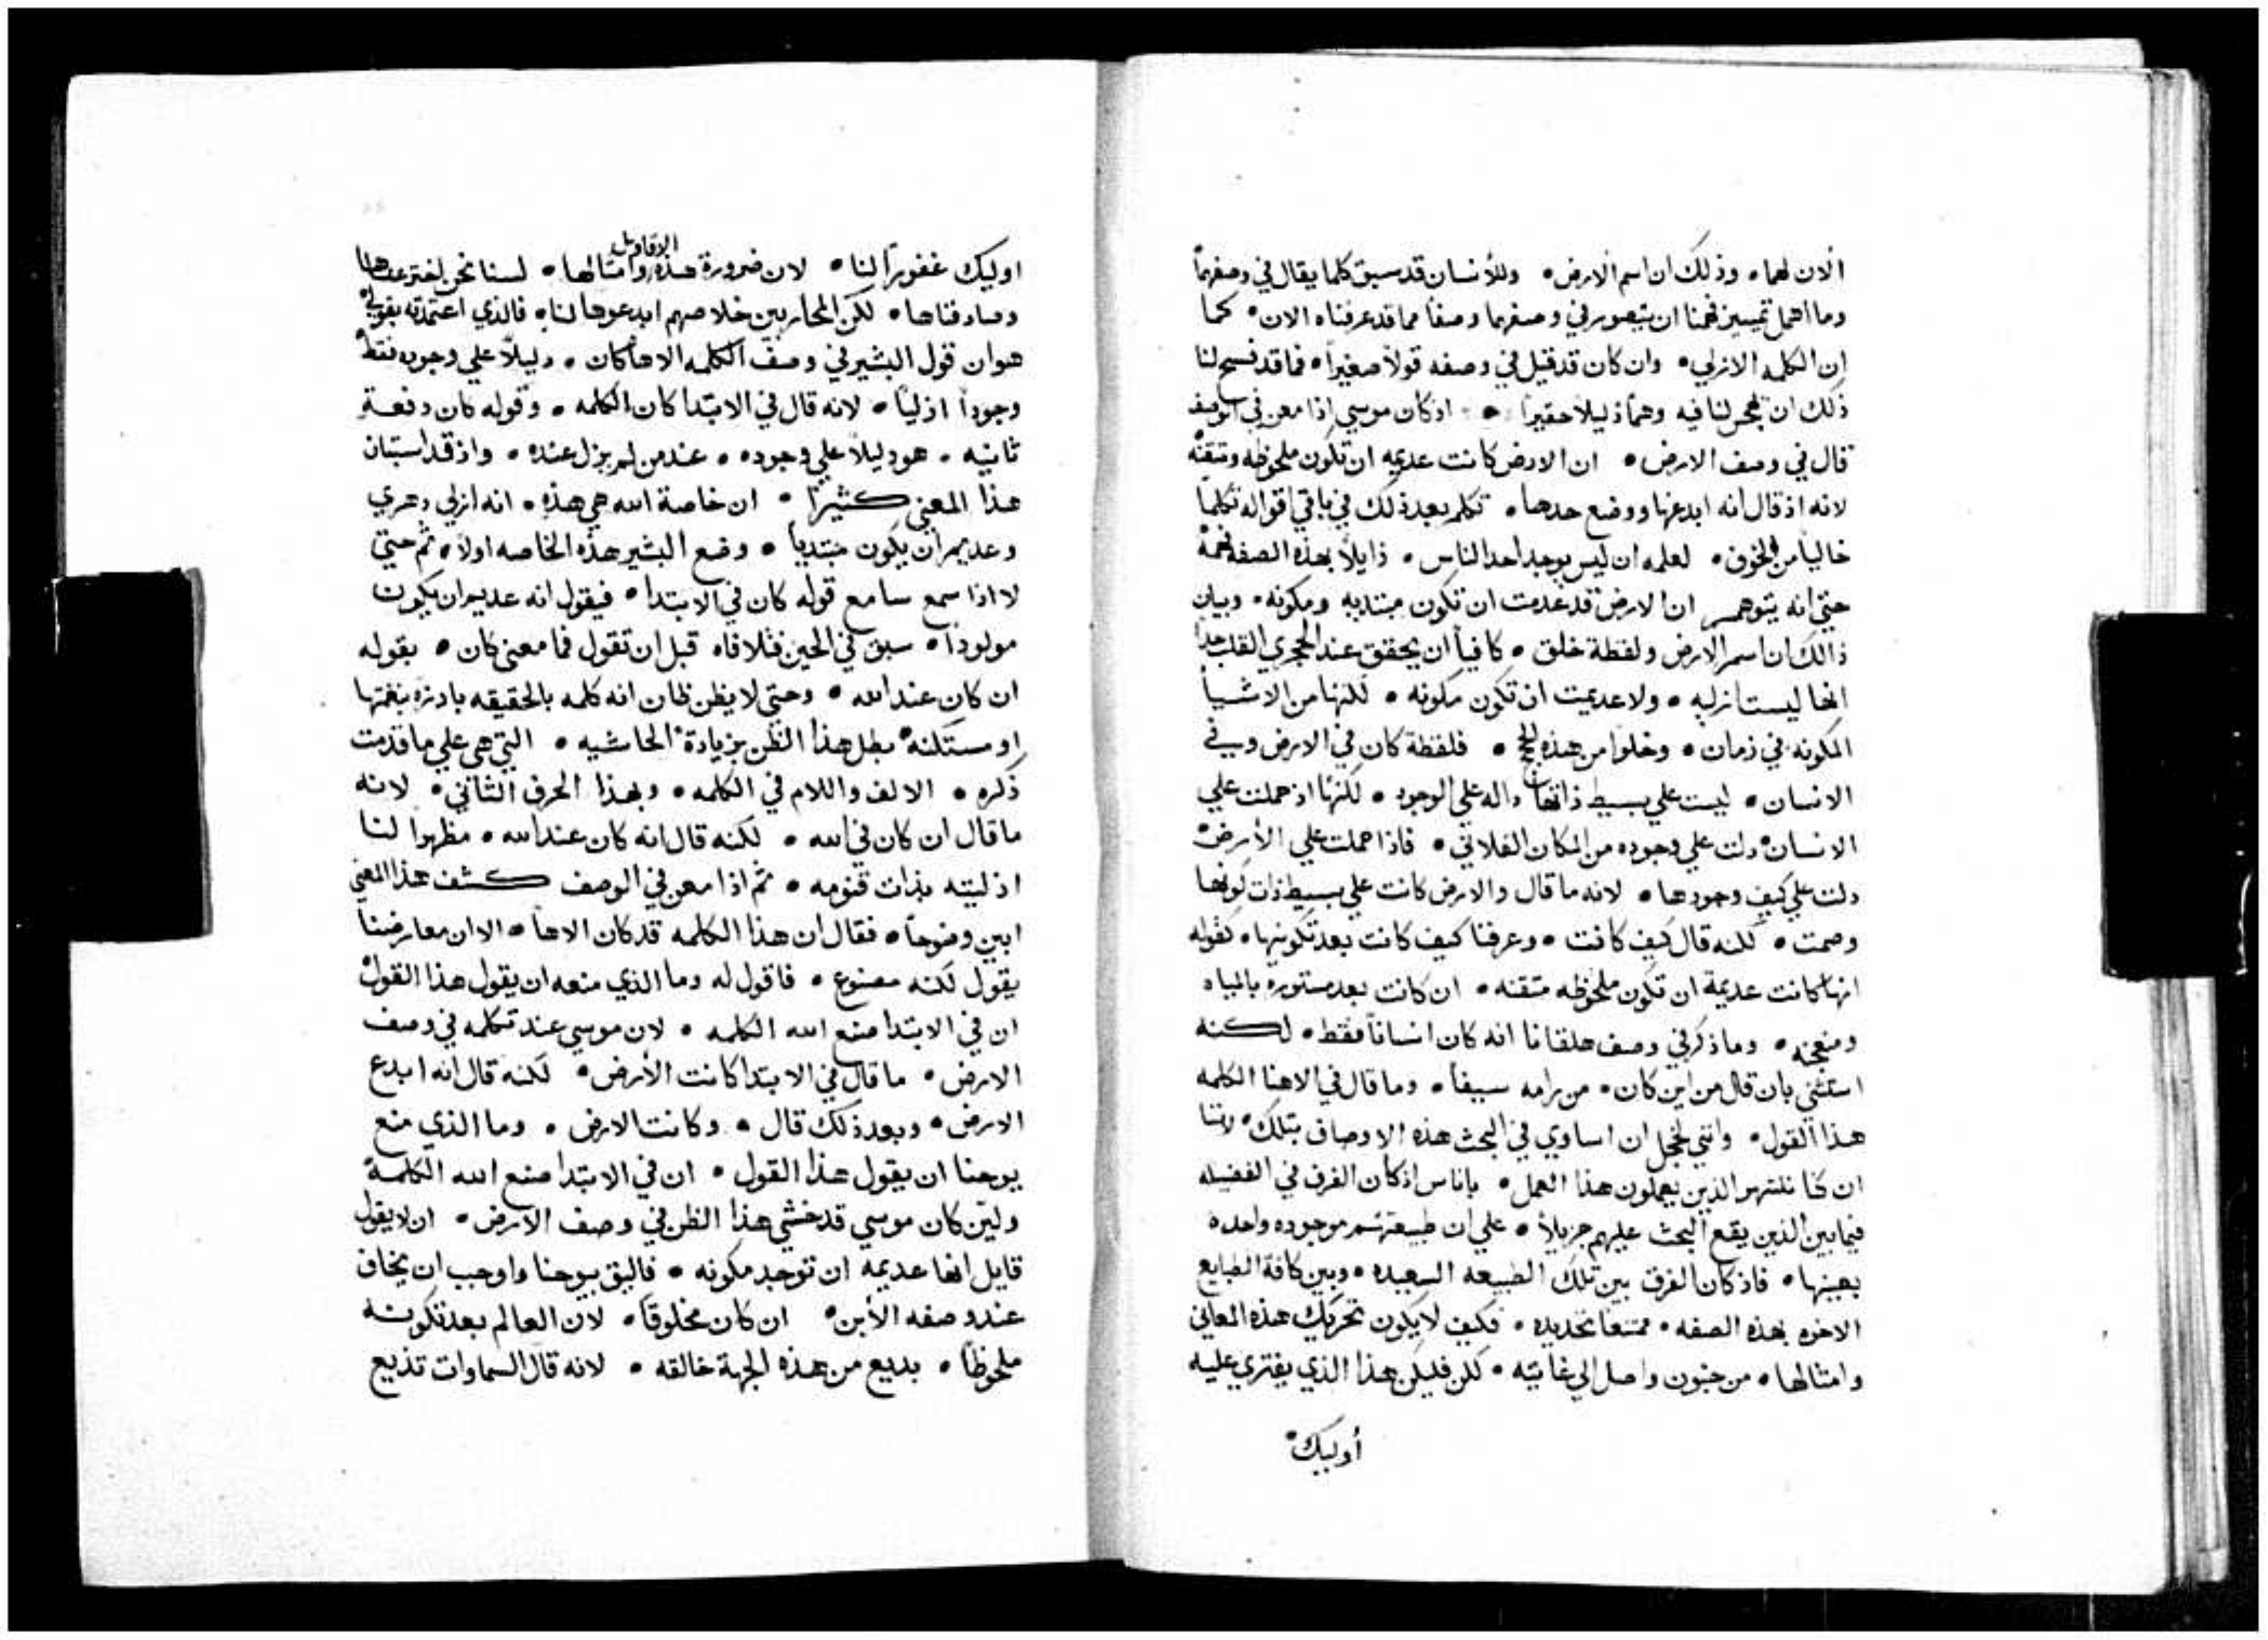 الان لهما • وذلك ان اسم الارض • وللأنسان قد سبق كلما يقال في وصفهما
وما اهمل تمييز فهمنا ان يتصور في وصفهما وصفاً مما قد عرفناه الان • كما
ان الكلمه الازلي • وان كان قد قيل في وصفه قولاً صغيراً • فما قد فسح لنا
ذلك ان لنا فيه وهماً ذليلاً حقيراً • اذ كان موسي اذا معن في الوصف
قال في وصف الارض • ان الارض كانت عديمه ان تكون ملحوظه ومتقنه
لانه اذ قال انه ابدعها ووضع حدها • تكلم بعد ذلك في باقي اقواله تكلماً
خالياً من الخوف • لعلمه ان ليس يوجد احد الناس • ذايلاً بهذه الصفه فهمه
حتي انه يتوهم ان الارض قد عدمت ان تكون مبتديه ومكونه • وبيان
ذالك ان اسم الارض ولفظة خلق • كافياً ان يحقق عند الحجري القلب جداً
انها ليست ازليه • ولا عديمت ان تكون مكونه • لكنها من الاشيا
المكونه في زمان • وخلوا من هذه الحجج • فلفظة كان في الارض وفي
الانسان • ليست علي بسيط ذاتها داله علي الوجود • لكنها اذ حملت علي
الانسان دلت علي وجوده من المكان الفلاني • فاذا حملت علي الأرض
دلت علي كيف وجودها • لانه ما قال والارض كانت علي بسيط ذات كونها
وصمت • لكنه قال كيف كانت • وعرفنا كيف كانت بعد تكوينها • كقوله
انها كانت عديمة ان تكون ملحوظه متقنه • ان كانت بعد مستوره بالمياه
وما ذكر في وصف هلقانا انه كان انساناً فقط • لكنه
استثني بان قال من اين كان • من رامه سيفا • وما قال في الاهنا الكلمه
هذا القول • وانني لخجل ان اساوي في البحث هذه الاوصاف بتلك • لاننا
ان كنا ننتهر الذين يعملون هذا العمل • باناس اذ كان الفرق في الفضيله
فيما بين الذين يقع البحث عليهم جزيلاً • علي ان طبيعتهم موجوده واحده
بعينها • فاذ كان الفرق بين تلك الطبيعه السعيده • وبين كافة الطبايع
الاخره بهذه الصفه • ممتنعاً تحديده • فكيف لا يكون تحريك هذه المعاني
وامثالها • من جنون واصل الي غايته • لكن فليكن هذا الذي يفتري عليه
أوليك
اوليك غفوراً لنا • لان ضرورة هذه الاقاويل وامثالها • لسنا نحن اخترعناها
وصادفناها • لكن المحاربين خلاصهم ابدعوها لنا • فالذي اعتمدته بقولي
هو ان قول البشير في وصف الكلمه الاهاً كان • دليلاً علي وجوده فقط
وجوداً ازلياً • لانه قال في الابتدا كان الكلمه • وقوله كان دفعة
ثانيه • هو دليلاً علي وجوده • عند من لم يزل عنده • واذ قد استبان
هذا المعني كثيراً • ان خاصة الله هي هذه • انه ازلي دهري
وعديم ان يكون مبتدياً • وضع البشير هذه الخاصه اولاً • ثم حتي
لا اذا سمع سامع قوله كان في الابتدا • فيقول انه عديم ان يكون
مولوداً • سبق في الحين فتلافاه قبل ان تقول فما معني كان • بقوله
ان كان عند الله • وحتي لا يظن ظان انه كلمه بالحقيقه بادره بنغمتها
او مستكنه بطل هذا الظن بزيادة الحاشيه • التي هي علي ما قدمت
ذكره • الالف واللام في الكلمه • وبهذا الحرف الثاني • لانه
ما قال ان كان في الله • لكنه قال انه كان عند الله • مظهراً لنا
ازليته بذات قنومه • ثم اذا معن في الوصف كشف هذا المعني
ابين وضوحاً • فقال ان هذا الكلمه قد كان الاهاً • الا ان معارضنا
يقول لكنه مصنوع • فاقول له وما الذي منعه ان يقول هذا القول
ان في الابتدا صنع الله الكلمه • لان موسي عند تكلمه في وصف
الارض • ما قال في الابتدا كانت الأرض • لكنه قال انه ابدع
الارض • وبعد ذلك قال • وكانت الارض • وما الذي منع
يوحنا ان يقول هذا القول • ان في الابتدا صنع الله الكلمة
ولين كان موسي قد خشي هذا الظن في وصف الأرض • ان لا يقول
قايل انها عديمه ان توجد مكونه • فاليق بيوحنا واوجب ان يخاف
عند وصفه الأبن • ان كان مخلوقاً • لان العالم بعد تكونه
ملحوظاً • بديع من هذه الجهة خالقه • لانه قال السماوات تذيع